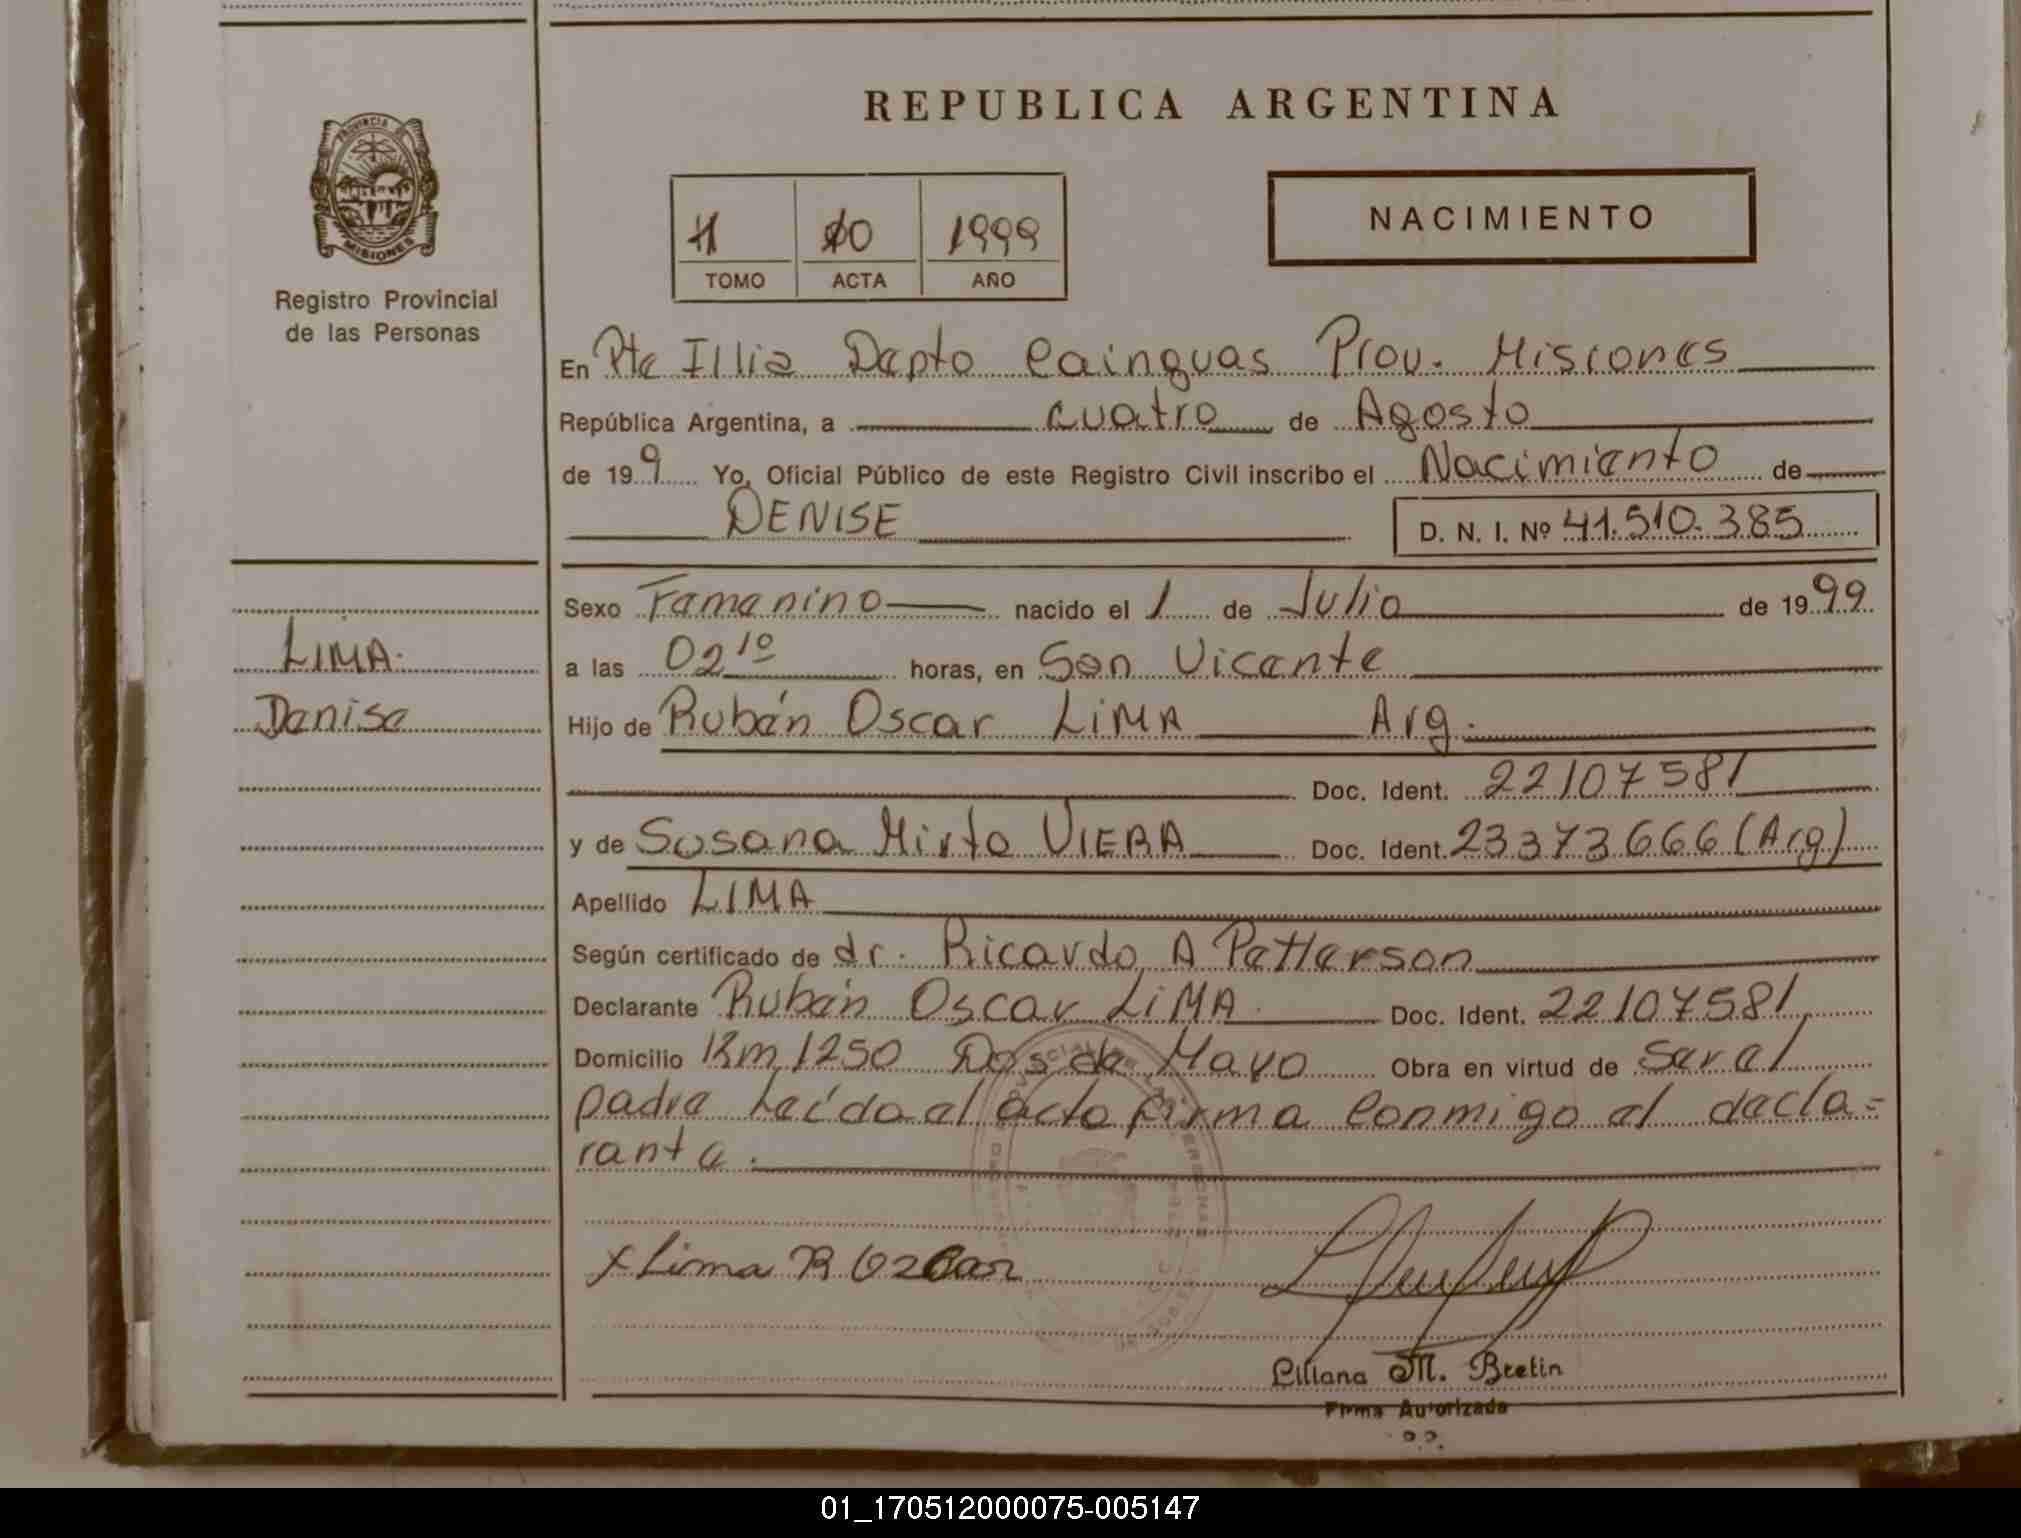 REPUBLICA ARGENTINA
PROVINCIA D
MISIONES
Registro Provincial
de las Personas
TOMO
10 ACTA
1999 AÑO
NACIMIENTO
En Pte Illia Depto Cainguas Prov. Misiones
República Argentina, a cuatro de Agosto
de 19 9 Yo, Oficial Público de este Registro Civil inscribo el Nacimiento de
DENISE
D. N. I. Nº 41.510.385
LIMA.
Denise
Sexo Femenino nacido el 1 de Julio de 19 99
a las 02 10 horas, en San Vicente
Hijo de Rubén Oscar LIMA Arg.
Doc. Ident. 22107581
y de Susana Mirta VIERA Doc. Ident. 23373666 (Arg)
Apellido LIMA
Según certificado de dr. Ricardo A Patterson
Declarante Rubén Oscar LIMA Doc. Ident. 22107581
Domicilio Km 1250 Dos de Mayo Obra en virtud de Ser el
padre Leída el acta firma Conmigo el decla=
rante.
x Lima R Oscar
Liliana M. Bretin
Firma Autorizada
01_170512000075-005147